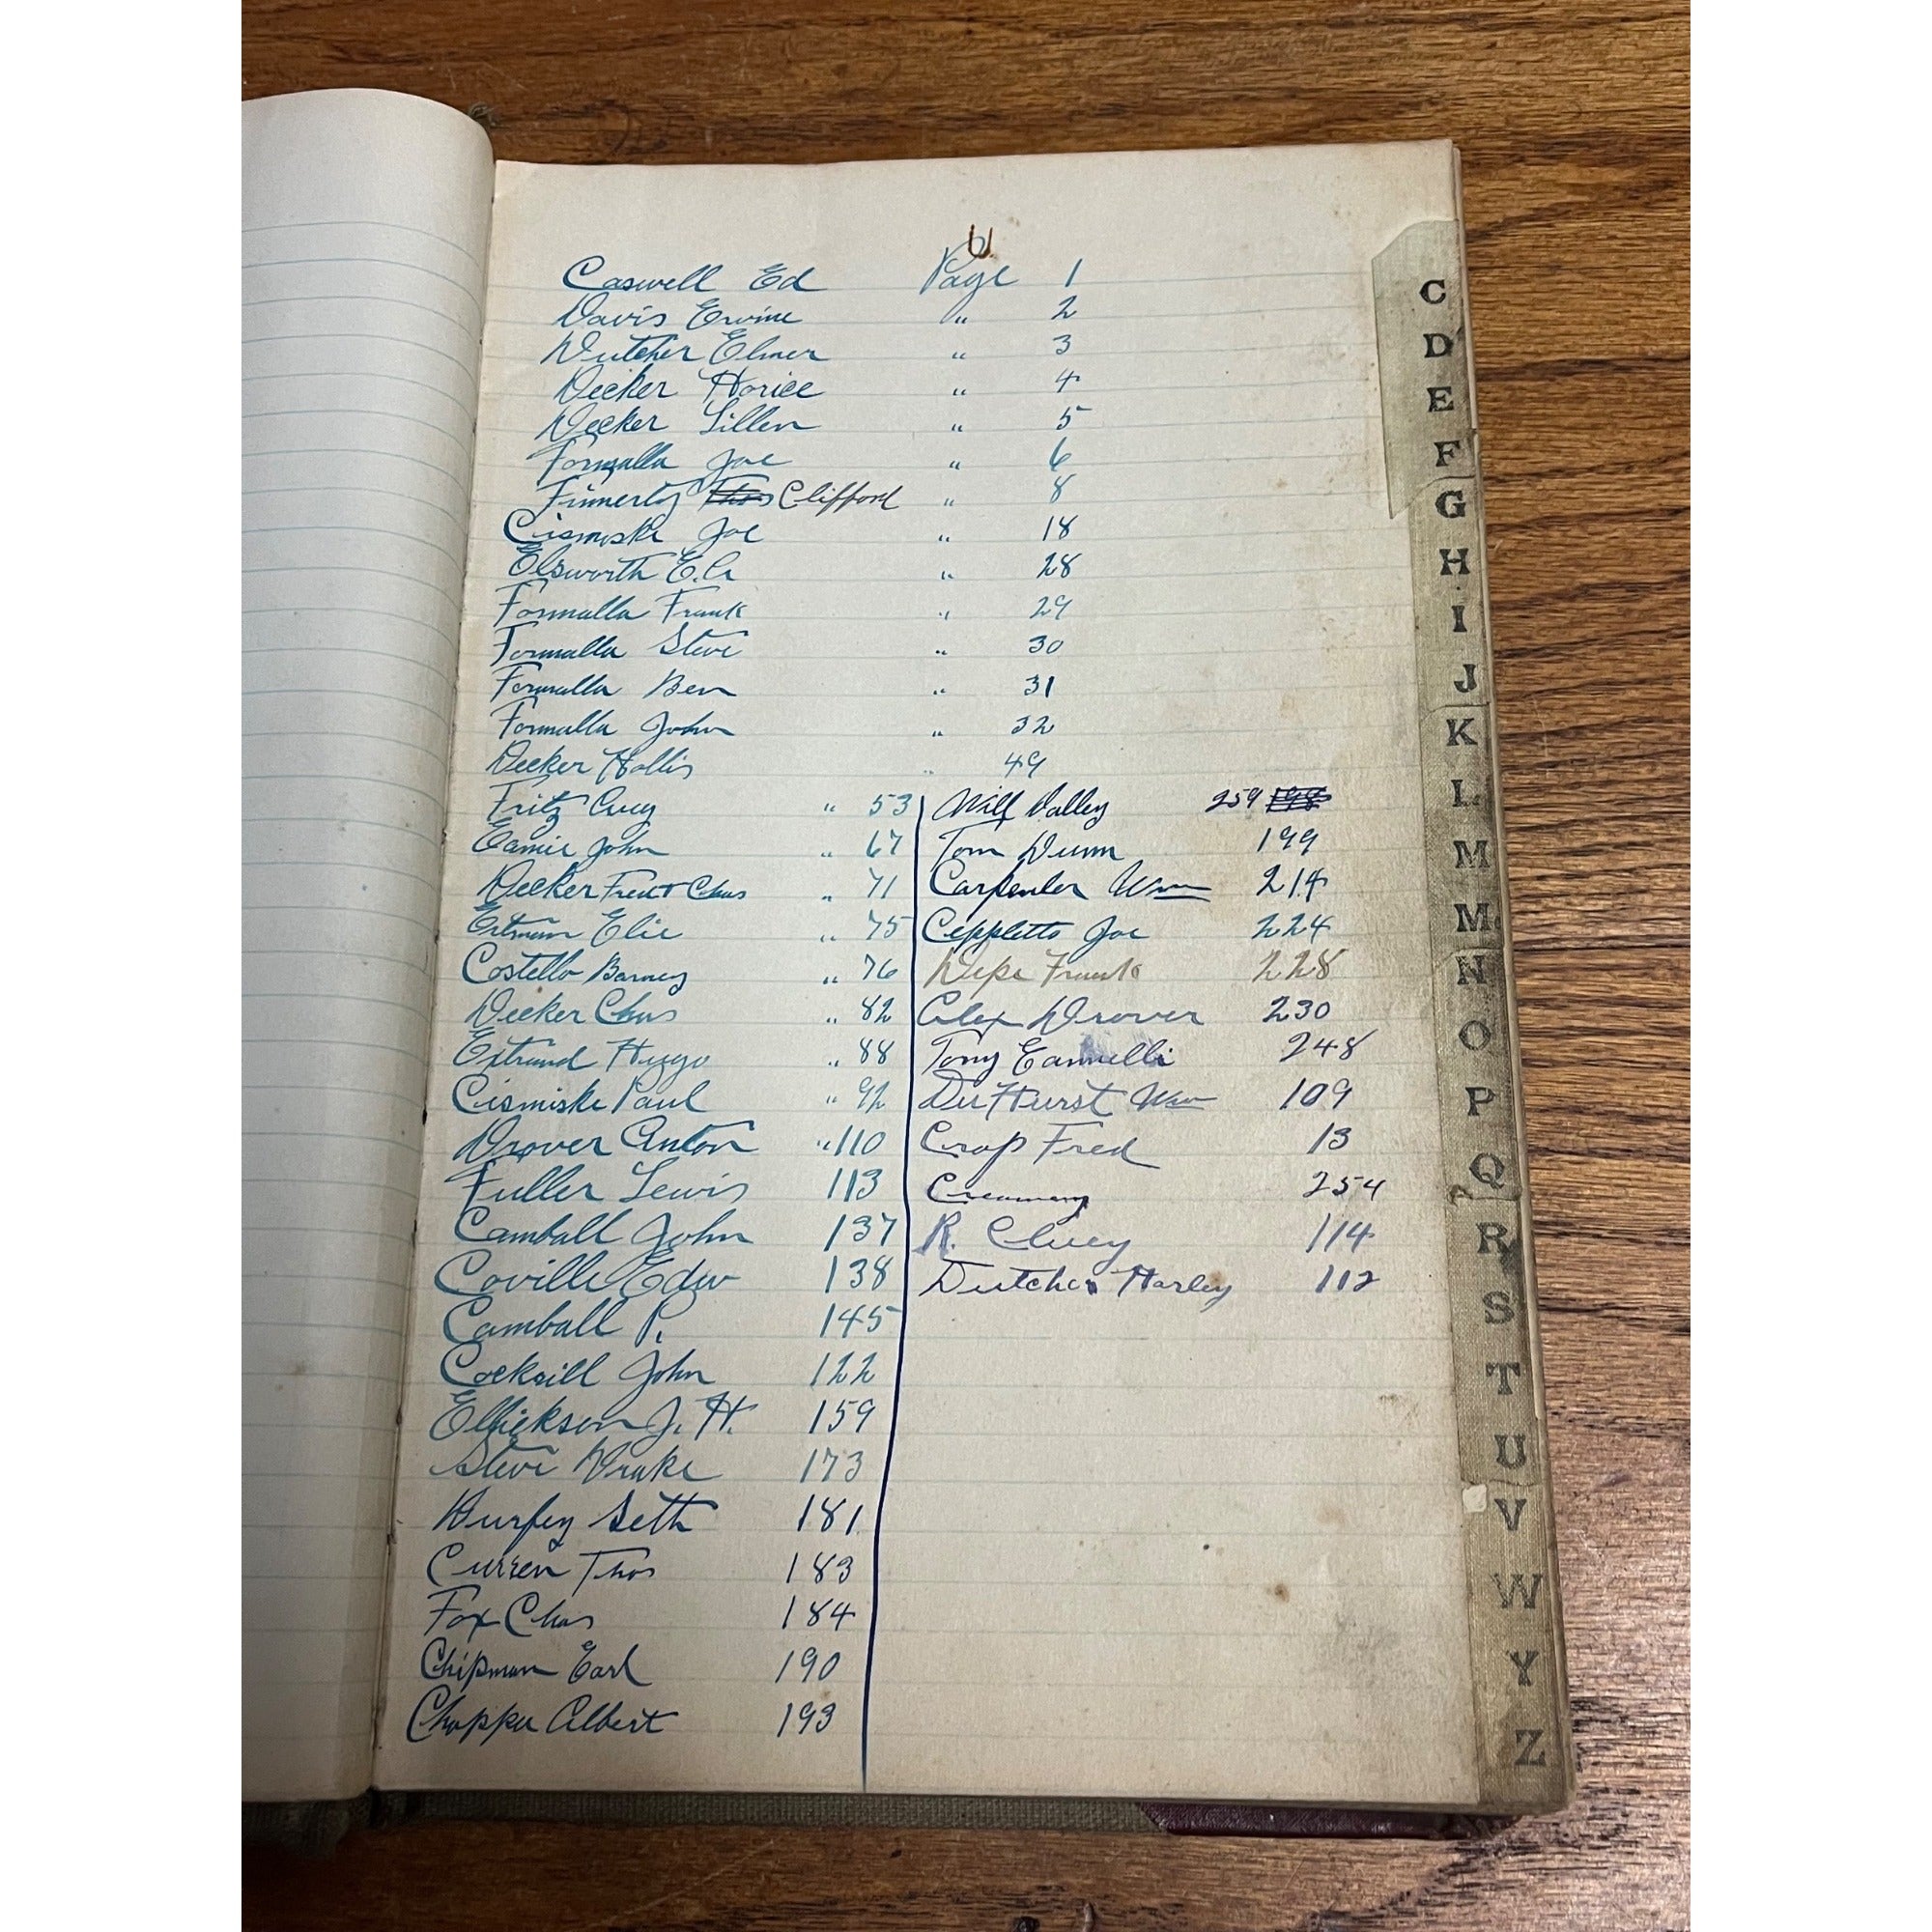 Caswell Ed Page 1
Davis Ervine " 2
Dutcher Elmer " 3
Decker Horice " 4
Decker Lillen " 5
Formalla Joe " 6
Finnerty Clifford " 8
Cismiske Joe " 18
Elsworth E.A " 28
Formalla Frank " 29
Formalla Steve " 30
Formalla Ben " 31
Formalla John " 32
Decker Hollis " 49
Fritz " 53
Eamie John " 67
Decker Chas " 71
Elie " 75
Costello Barney " 76
Decker Chas " 82
Extrand Hugo " 88
Cismiske Paul " 92
Drover Anton " 110
Fuller Lewis 113
Camball John 137
Coville Edw 138
Camball P. 145
Cocksill John 122
Ellickson J. H. 159
Steve Drake 173
Durfey Seth 181
Curren Thos 183
Fox Chas 184
Chipman Earl 190
Albert 193
Dalley 259 198
Tom Dunn 199
Carpenter Wm 214
Ceppletto Joe 224
Depe Frank 228
Alex Drover 230
Tony Eannelli 248
DuHurst Wm 109
Crop Fred 13
Creamery 254
R. Cluey 114
Dutcher Harley 112
C
D
E
F
G
H
I
J
K
L
M
Mc
N
O
P
Q
R
S
T
U
V
W
Y
Z